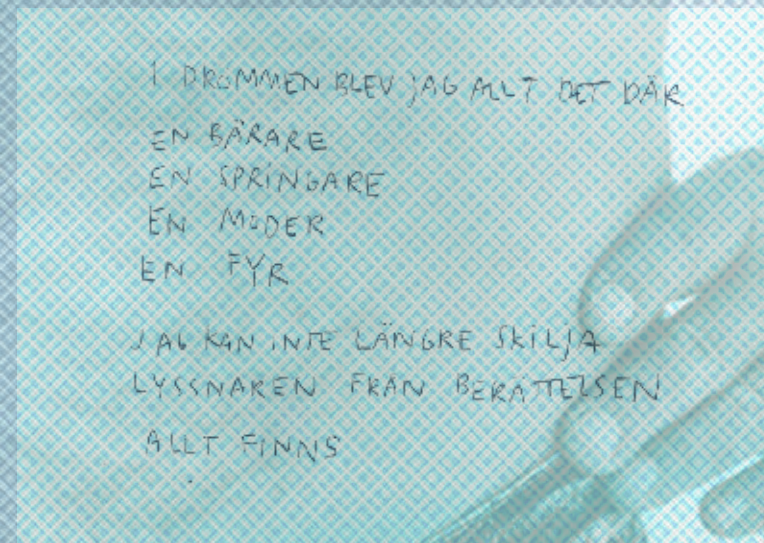 I DRÖMMEN BLEV JAG ALLT DET DÄR
EN BÄRARE
EN SPRINGARE
EN MODER
EN FYR
JAG KAN INTE LÄNGRE SKILJA
LYSSNAREN FRÅN BERÄTTELSEN
ALLT FINNS